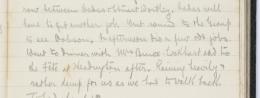 now between Baker & Stuart Dudley, Baker will
have to get another job. Went round to the Group
to see Dobson. In afternoon did a few odd jobs.
Went to dinner with Mrs Bruce Lockhart and to
the Fête at Headington after. Rainy heavily &
rather damp for us as we had to walk back.